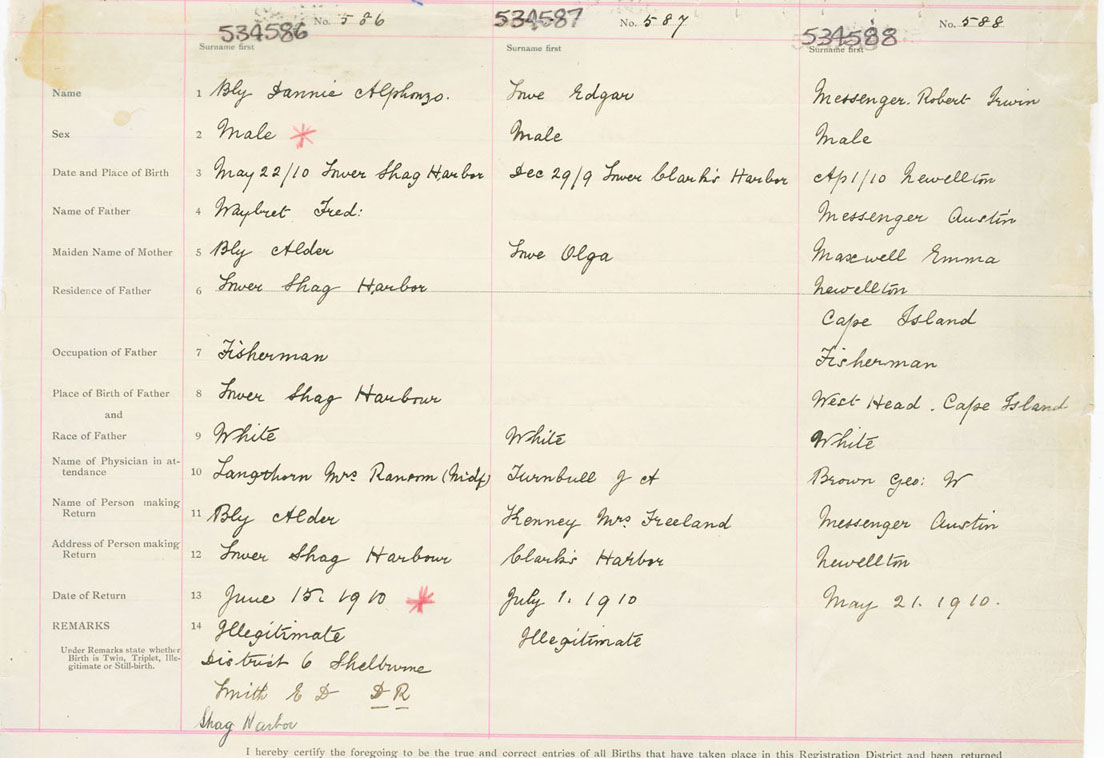 534586 No. 586 534587 No. 587 534588 No. 588
Surname first Surname first Surname first
Name 1 Bly Dannie Alphonzo. Lowe Edgar Messenger. Robert Irwin
Sex 2 Male Male Male
Date and Place of Birth 3 May 22/10 Lower Shag Harbor Dec 29/9 Lower Clark's Harbor Ap 1/10 Newellton
Name of Father 4 Waybret Fred: Messenger Austin
Maiden Name of Mother 5 Bly Alder Lowe Olga Maxwell Emma
Residence of Father 6 Lower Shag Harbor Newellton
Cape Island
Occupation of Father 7 Fisherman Fisherman
Place of Birth of Father 8 Lower Shag Harbour West Head. Cape Island
and
Race of Father 9 White White White
Name of Physician in at-
tendance 10 Langthorn Mrs Ransom (Midf) Turnbull J A Brown Geo: W
Name of Person making
Return 11 Bly Alder Kenney Mrs Freeland Messenger Austin
Address of Person making
Return 12 Lower Shag Harbour Clark's Harbor Newellton
Date of Return 13 June 15. 1910 July 1. 1910 May 21. 1910.
REMARKS 14 Illegitimate Illegitimate
Under Remarks state whether
Birth is Twin, Triplet, Ille-
gitimate or Still-birth.
District 6 Shelburne
Smith E D D R
Shag Harbor
I hereby certify the foregoing to be the true and correct entries of all Births that have taken place in this Registration District and been returned